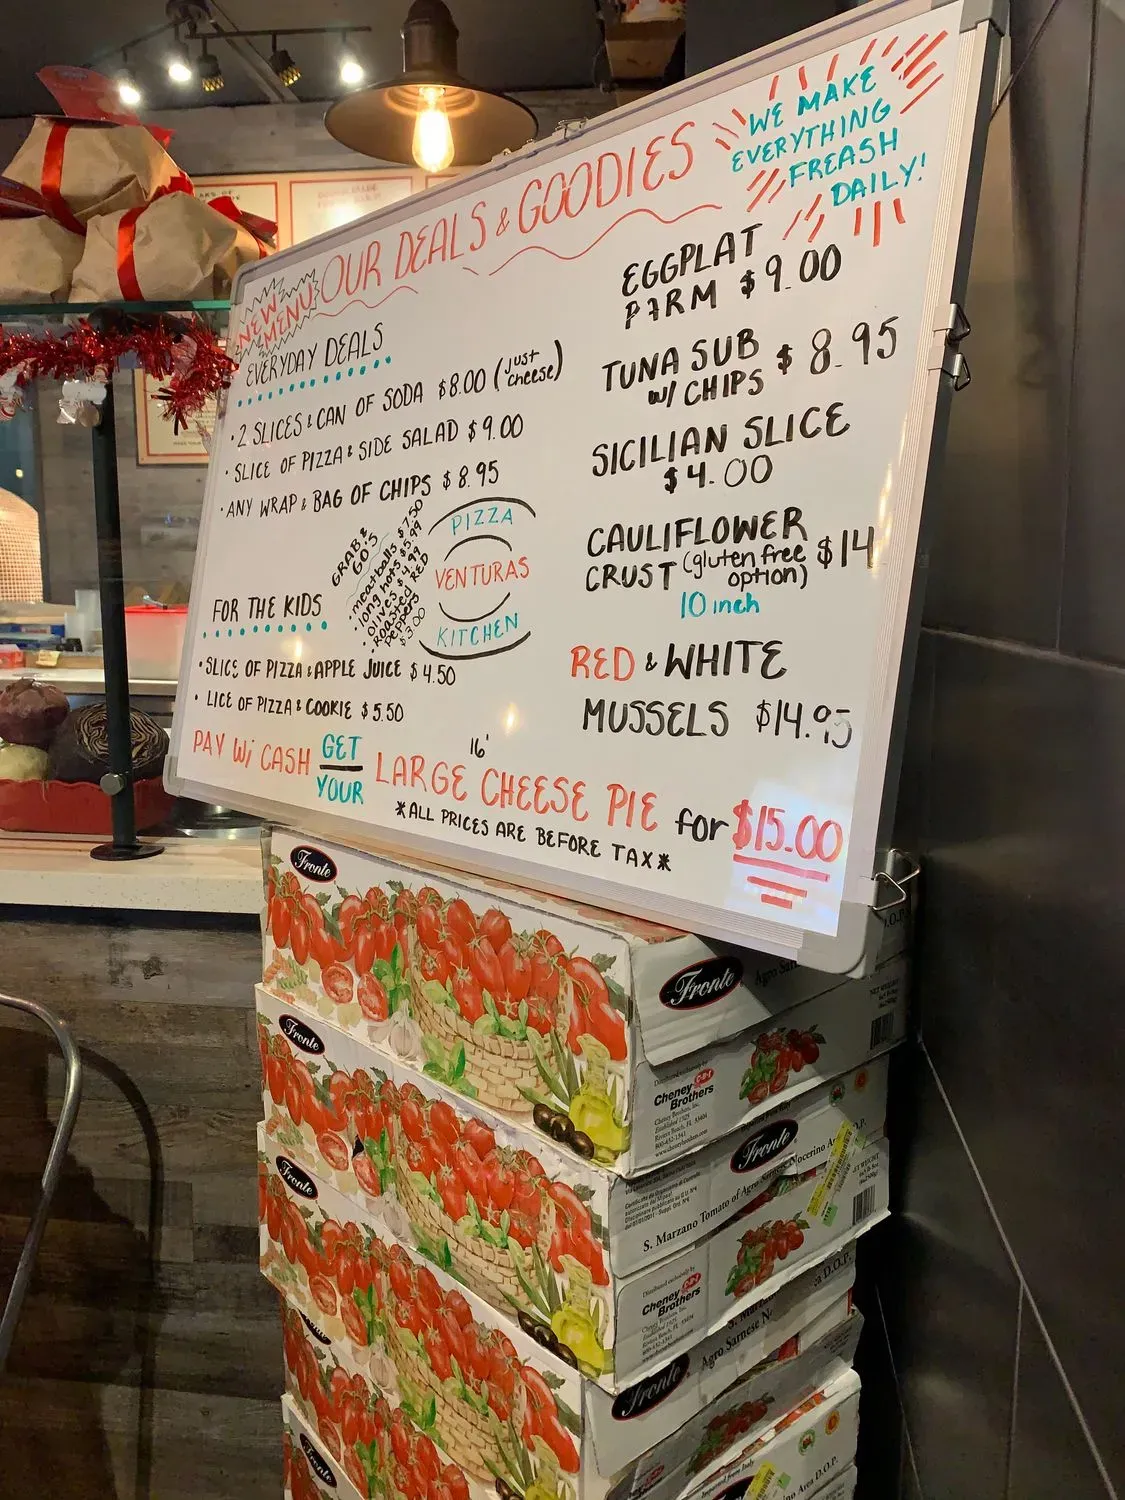 NEW MENU!
OUR DEALS & GOODIES
WE MAKE
EVERYTHING
FREASH
DAILY!
EVERYDAY DEALS
· 2 SLICES & CAN OF SODA $8.00 (just cheese)
· SLICE OF PIZZA & SIDE SALAD $9.00
· ANY WRAP & BAG OF CHIPS $8.95
GRAB & GO'S
· meatballs $7.50
· long hots $5.99
· olives $4.99
· ROASTED RED
peppers
$3.00
PIZZA
VENTURAS
KITCHEN
FOR THE KIDS
· SLICE OF PIZZA & APPLE JUICE $4.50
· LICE OF PIZZA & COOKIE $5.50
EGGPLAT
PARM $9.00
TUNA SUB
w/ CHIPS $8.95
SICILIAN SLICE
$4.00
CAULIFLOWER
CRUST (gluten free option) $14
10 inch
RED & WHITE
MUSSELS $14.95
PAY W/ CASH GET YOUR 16' LARGE CHEESE PIE for $15.00
*ALL PRICES ARE BEFORE TAX*
Fronte
Fronte
Agro
D.O.P.
NET WEIGHT
Distributed exclusively by
Cheney Brothers
Cheney Brothers, Inc.
Established 1925
Riviera Beach, FL 33404
800-432-1341
Fronte
Fronte
S. Marzano Tomato of Agro Sarnese Nocerino Area D.O.P.
NET WEIGHT
Distributed exclusively by
Cheney Brothers
Fronte
Fronte
Agro Sarnese
D.O.P.
Fronte
Imported from Italy
Area D.O.P.